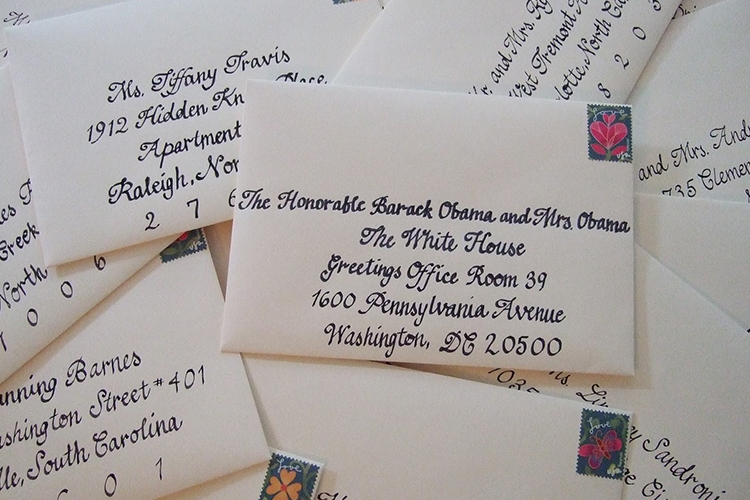 Ms. Tiffany Travis
1912 Hidden Place
Apartment
Raleigh,
2 7 6
r. and Mrs. Ry
West Tremont
lotte, North Ca
8 2 0 3
The Honorable Barack Obama and Mrs. Obama
The White House
Greetings Office Room 39
1600 Pennsylvania Avenue
Washington, DC 20500
and Mrs. And
735 Clemen
Creek
North
0 0 6
anning Barnes
ashington Street #401
lle, South Carolina
6 0 1
love
love
Sandroni